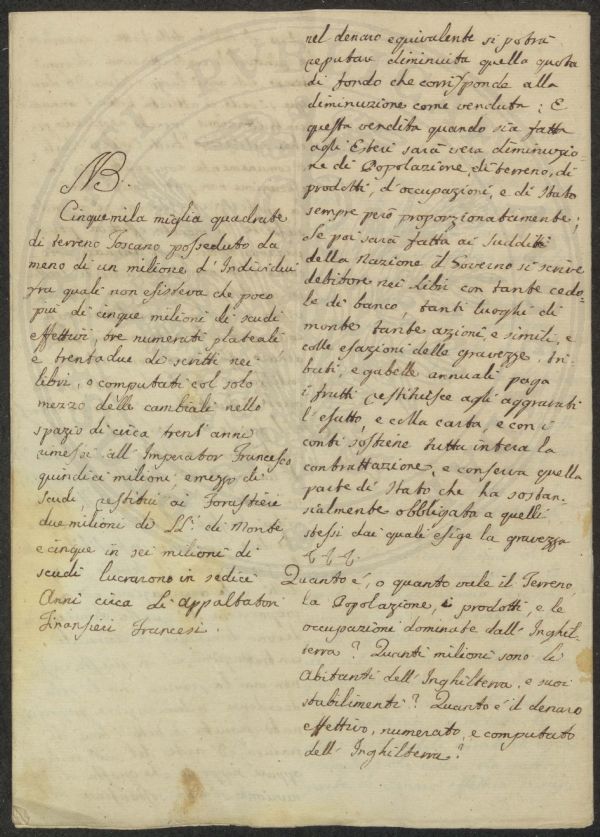 NB.
Cinquemila miglia quadrate
di terreno Toscano posseduto da
meno di un milione d'Individui
fra quali non esisteva che poco
più di cinque milioni di scudi
effettivi, ore numerati plateali
e trentadue di scritti nei
libri, o computati col solo
mezzo delle cambiali nello
spazio di circa trent'anni
rimessi all'Imperator Francesco
quindici milioni, e mezzo di
scudi, restituì ai Forastieri
due milioni di LL: di Monte,
e cinque in sei milioni di
scudi lucrarono in sedici
Anni circa li Appaltatori
Finansieri Francesi.
nel denaro equivalente si potrà
reputar diminuita quella quota
di fondo che corrisponde alla
diminuzione come venduta; E
questa vendita quando sia fatta
agli Esteri sarà vera diminuzio-
ne di Popolazione, di terreno, di
prodotti, d'occupazioni, e di Stato
sempre però proporzionatamente;
Se poi sarà fatta ai Sudditi
della Nazione il Governo si scrive
debitore nei Libri con tante cedo-
le di banco, tanti luoghi di
monte tante azioni, e simili, e
colle esazioni delle gravezze, tri
buti, e gabelle annuali paga
i frutti restituisce agli aggravati
l'esatto, e colla carta, e con i
conti sostiene tutta intera la
contrattazione, e conserva quella
parte di Stato che ha sostan-
zialmente obbligata a quelli
stessi dai quali esige la gravezza
Quanto é, o quanto vale il Terreno,
la Popolazione, i prodotti, e le
occupazioni dominate dall'Inghil-
terra? Quanti milioni sono li
Abitanti dell'Inghilterra, e suoi
stabilimenti? Quanto é il denaro
effettivo, numerato, e computato
dell'Inghilterra?